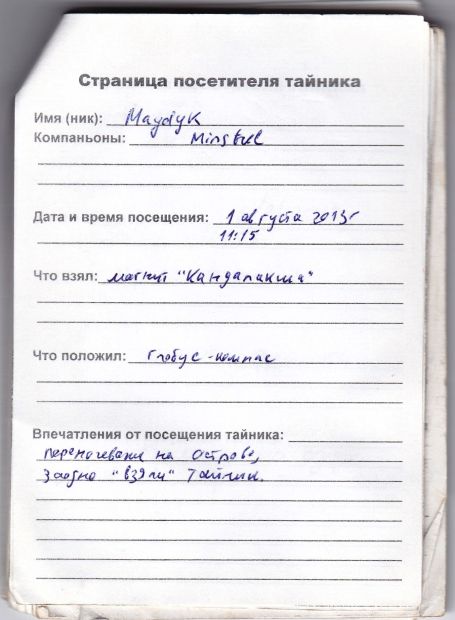 Страница посетителя тайника
Имя (ник): Maydyk
Компаньоны: Minstrel
Дата и время посещения: 1 августа 2013г
11:15
Что взял: магнит "Кандалакша"
Что положил: глобус-компас
Впечатления от посещения тайника:
переночевали на острове,
заодно "взяли" тайник.